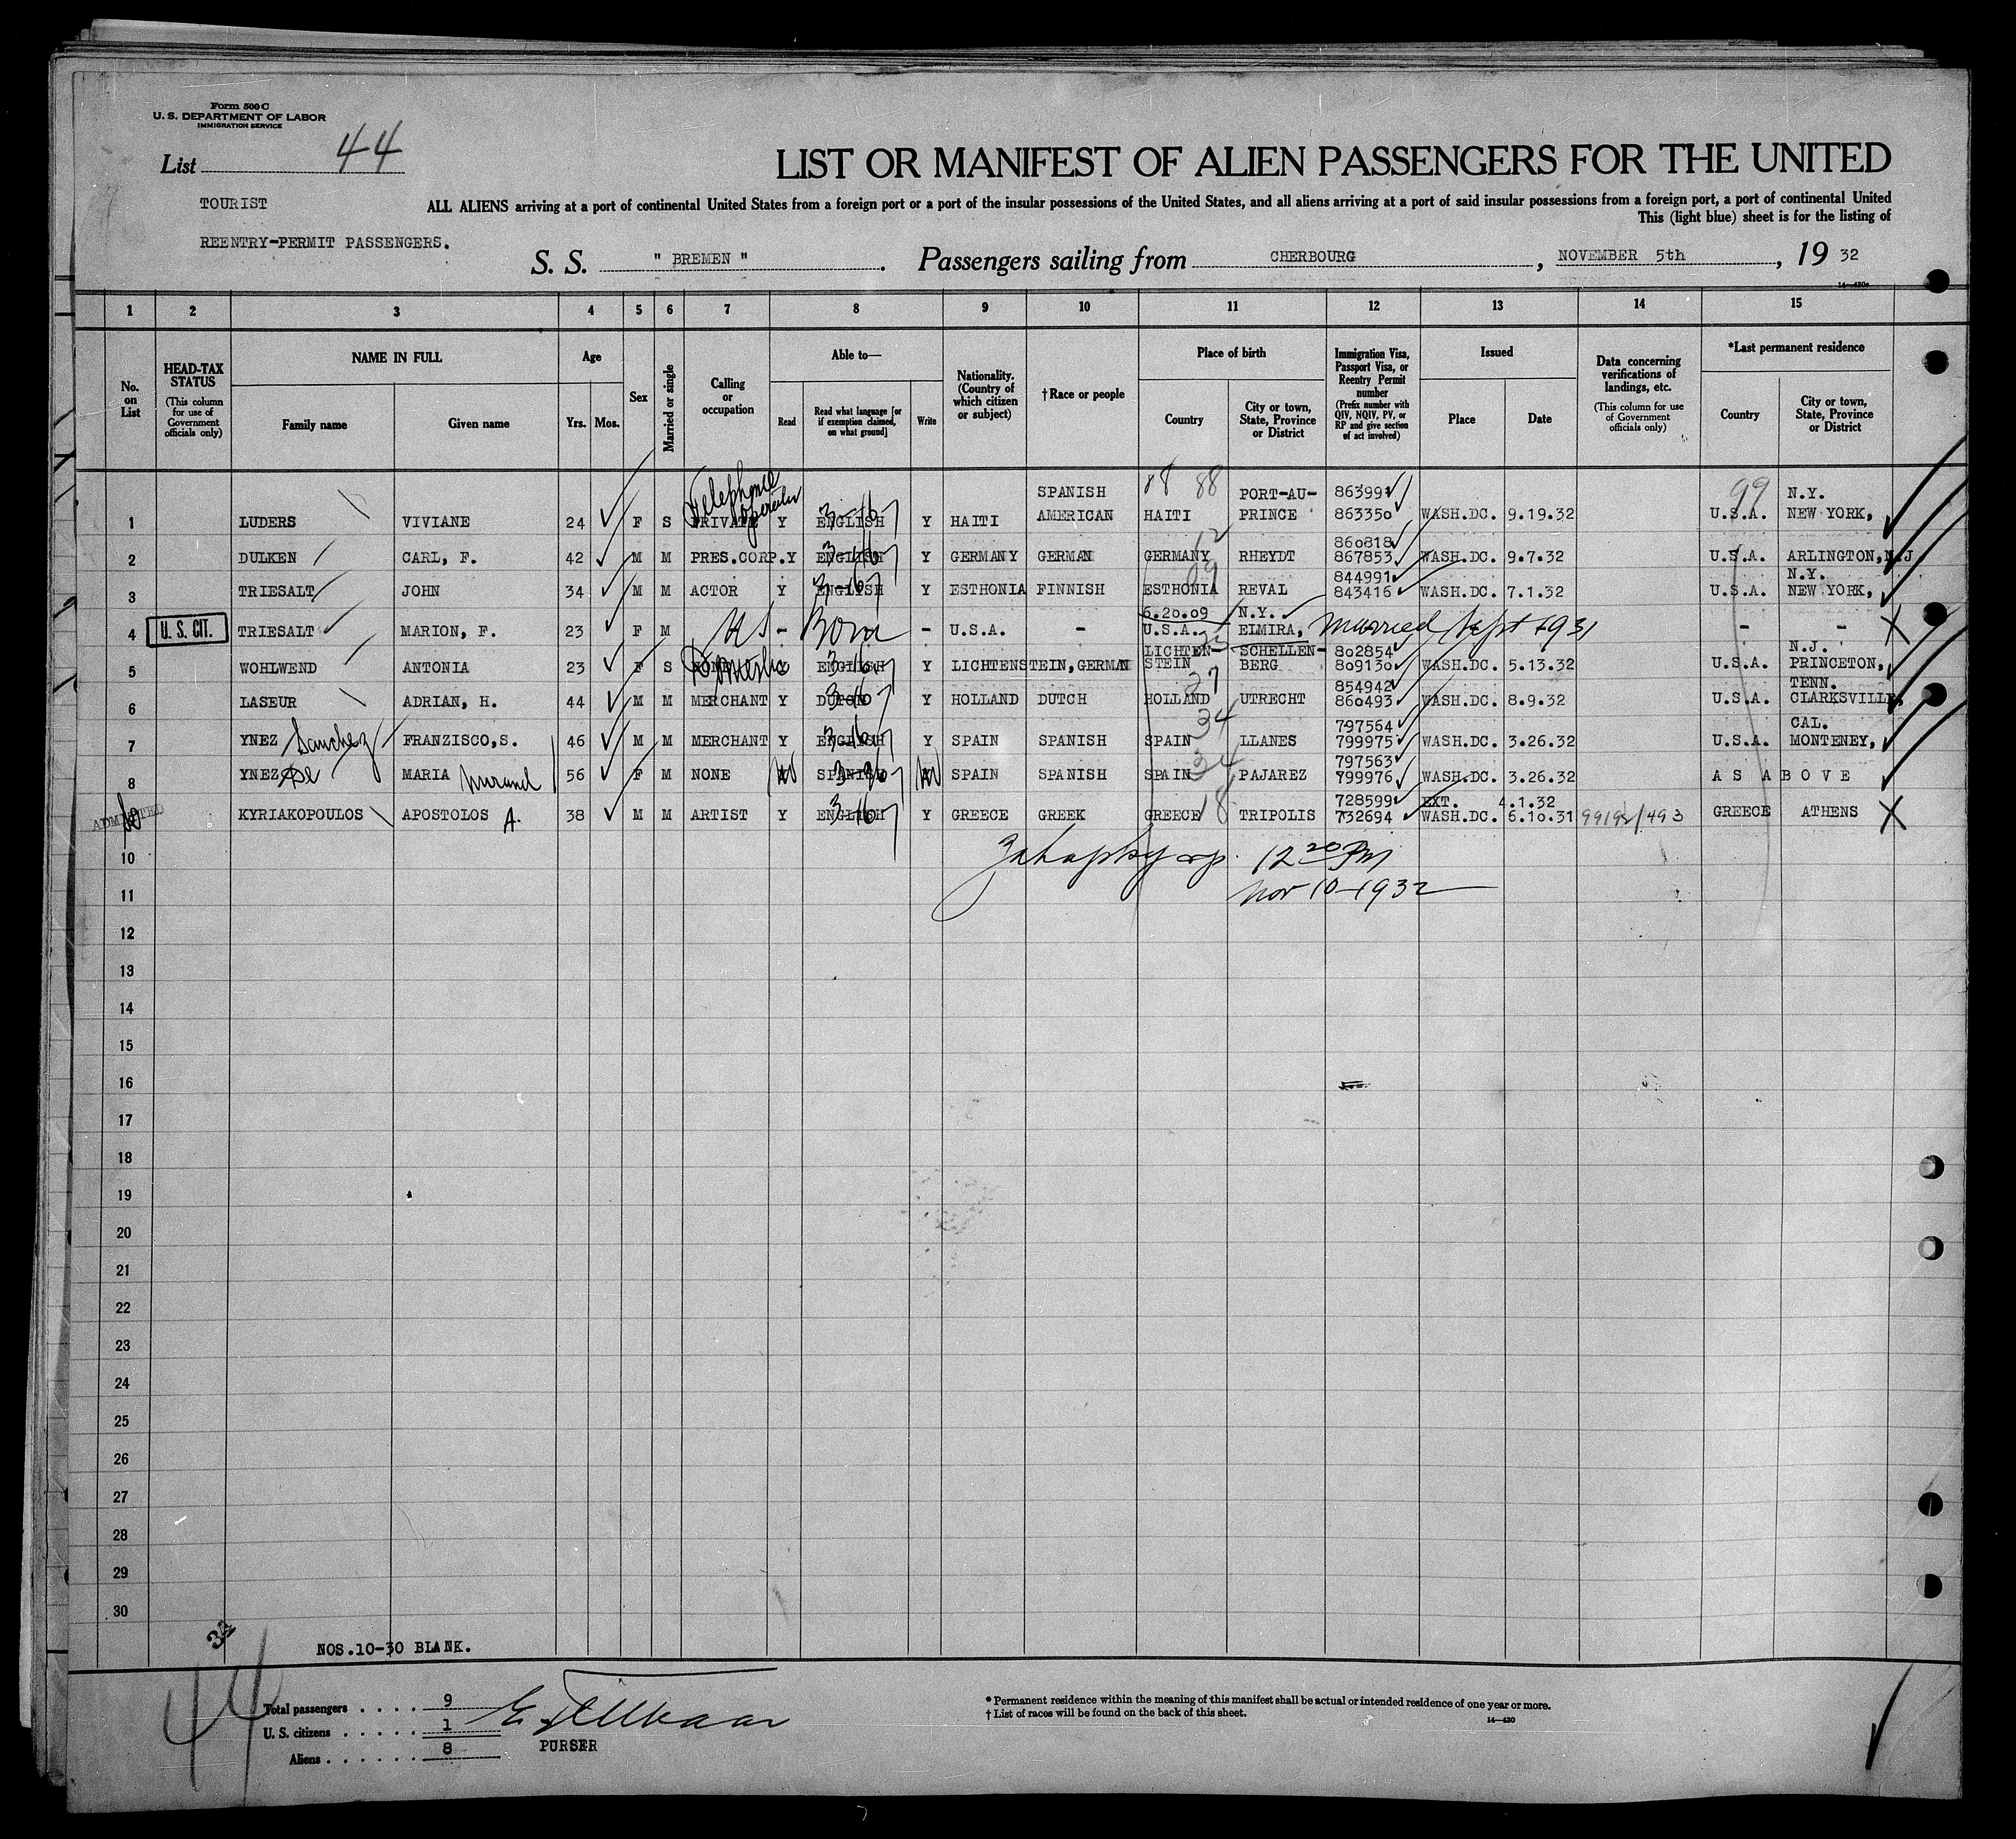 Form 500 C
U. S. DEPARTMENT OF LABOR
IMMIGRATION SERVICE
List 44
LIST OR MANIFEST OF ALIEN PASSENGERS FOR THE UNITED
TOURIST
ALL ALIENS arriving at a port of continental United States from a foreign port or a port of the insular possessions of the United States, and all aliens arriving at a port of said insular possessions from a foreign port, a port of continental United
This (light blue) sheet is for the listing of
REENTRY-PERMIT PASSENGERS.
S. S. " BREMEN ". Passengers sailing from CHERBOURG, NOVEMBER 5th, 19 32
1 2 3 4 5 6 7 8 9 10 11 12 13 14 15
No. on List
HEAD-TAX STATUS
(This column for use of Government officials only)
NAME IN FULL
Family name Given name
Age
Yrs. Mos.
Sex
Married or single
Calling or occupation
Able to—
Read
Read what language [or if exemption claimed, on what ground]
Write
Nationality. (Country of which citizen or subject)
†Race or people
Place of birth
Country
City or town, State, Province or District
Immigration Visa, Passport Visa, or Reentry Permit number
(Prefix number with QIV, NQIV, PV, or RP and give section of act involved)
Issued
Place Date
Data concerning verifications of landings, etc.
(This column for use of Government officials only)
*Last permanent residence
Country
City or town, State, Province or District
Telephone operator SPANISH 88 PORT-AU- 863991 99 N.Y.
1 LUDERS VIVIANE 24 F S PRIVATE Y ENGLISH 3-16 Y HAITI AMERICAN HAITI PRINCE 863350 WASH.DC. 9.19.32 U.S.A. NEW YORK,
12 860818
2 DULKEN CARL, F. 42 M M PRES.CORP. Y ENGLISH 3-16 Y GERMANY GERMAN GERMANY RHEYDT 867853 WASH.DC. 9.7.32 U.S.A. ARLINGTON,N.J.
09 844991 N.Y.
3 TRIESALT JOHN 34 M M ACTOR Y ENGLISH 3-16 Y ESTHONIA FINNISH ESTHONIA REVAL 843416 WASH.DC. 7.1.32 U.S.A. NEW YORK,
6.20.09 N.Y.
4 U. S. CIT. TRIESALT MARION, F. 23 F M US - Born - U.S.A. - U.S.A. ELMIRA, Married Sept 1931 - -
LICHTEN- SCHELLEN- 802854 N.J.
5 WOHLWEND ANTONIA 23 F S NONE Domestic ENGLISH 3-16 Y LICHTENSTEIN, GERMAN STEIN BERG 809130 WASH.DC. 5.13.32 U.S.A. PRINCETON,
27 854942 TENN.
6 LASEUR ADRIAN, H. 44 M M MERCHANT Y DUTCH 3-16 Y HOLLAND DUTCH HOLLAND UTRECHT 860493 WASH.DC. 8.9.32 U.S.A. CLARKSVILLE,
34 797564 CAL.
7 YNEZ Sanchez FRANZISCO,S. 46 M M MERCHANT Y ENGLISH 3-16 Y SPAIN SPANISH SPAIN LLANES 799975 WASH.DC. 3.26.32 U.S.A. MONTENEY,
34 797563
8 YNEZ de MARIA 56 F M NONE No SPANISH No SPAIN SPANISH SPAIN PAJAREZ 799976 WASH.DC. 3.26.32 AS ABOVE
18 728599 EXT. 4.1.32
ADMITTED KYRIAKOPOULOS APOSTOLOS A. 38 M M ARTIST Y ENGLISH 3-16 Y GREECE GREEK GREECE TRIPOLIS 732694 WASH.DC. 6.10.31 99192/493 GREECE ATHENS
10 12 20 PM
11 Nov 10-1932
12
13
14
15
16
17
18
19
20
21
22
23
24
25
26
27
28
29
30
34
NOS.10-30 BLANK.
44
Total passengers 9
U. S. citizens 1
Aliens 8
PURSER
* Permanent residence within the meaning of this manifest shall be actual or intended residence of one year or more.
† List of races will be found on the back of this sheet.
14—430